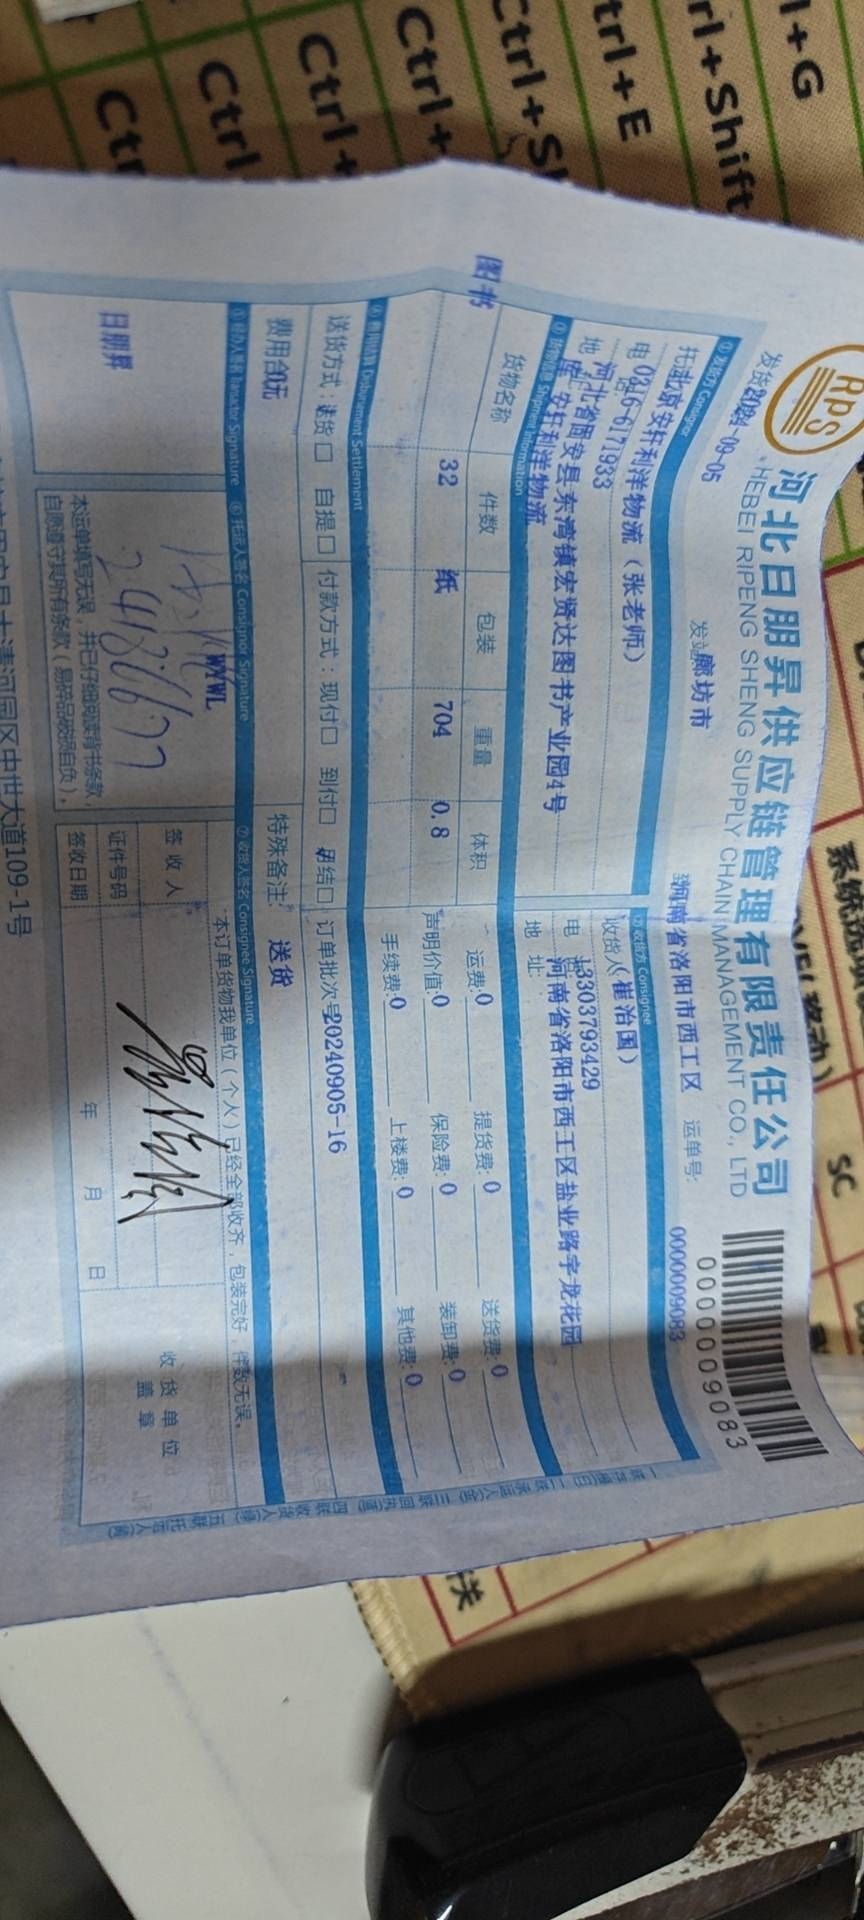 RPS
河北日朋昇供应链管理有限责任公司
HEBEI RIPENG SHENG SUPPLY CHAIN MANAGEMENT CO., LTD
0000009083
2024-09-05
廊坊市
河南省洛阳市西工区
运单号:
0000009083
①发货方 Consignor
北京安轩利洋物流(张老师)
0316-6171933
河北省固安县东湾镇宏贤达图书产业园4号
安轩利洋物流
②收货方 Consignee
收货人
(崔治国)
电
13303793429
地 址:
河南省洛阳市西工区盐业路宇龙花园
③货物信息 Shipment Information
货物名称 件数 包装 重量 体积
图书 32 纸 704 0.8
运费:0 提货费:0 送货费:0
声明价值:0 保险费:0 装卸费:0
手续费:0 上楼费:0 其他费:0
④费用结算 Disbursement Settlement
送货方式:送货□ 自提□ 付款方式:现付□ 到付□ 月结□
订单批次号20240905-16
费用合 0元
特殊备注: 送货
⑤经办人签名 Transactor Signature
⑥托运人签名 Consignor Signature
⑦收货人签名 Consignee Signature
日朋昇
WXWL
2486677
本运单填写无误,并已仔细阅读背书条款,
自愿遵守其所有条款(易碎品破损自负)。
本订单货物我单位(个人)已经全部收齐,包装完好,件数无误。
签 收 人
证件号码
签收日期
年 月 日
收 货 单 位
盖 章
固安县大清河园区中世大道109-1号
l+G
rl+Shift
trl+E
Ctrl+S
Ctrl+
Ctrl+
Ctrl
Ctr
SC
关